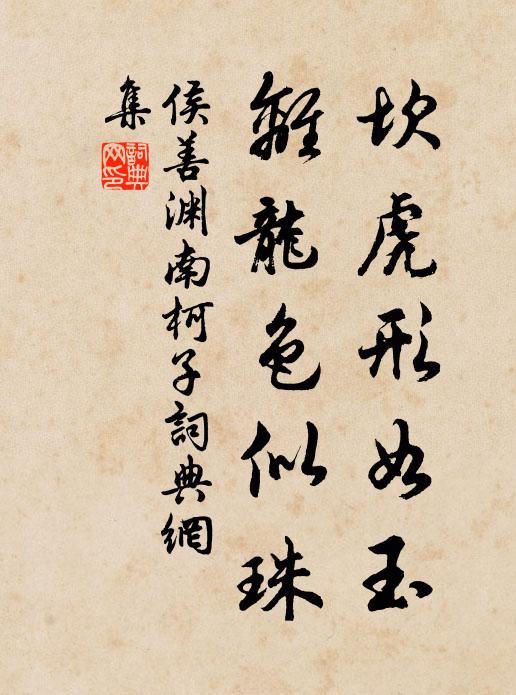 坎虎形如玉
離龍色似珠
侯善淵南柯子詞典網
集
詞典
网印